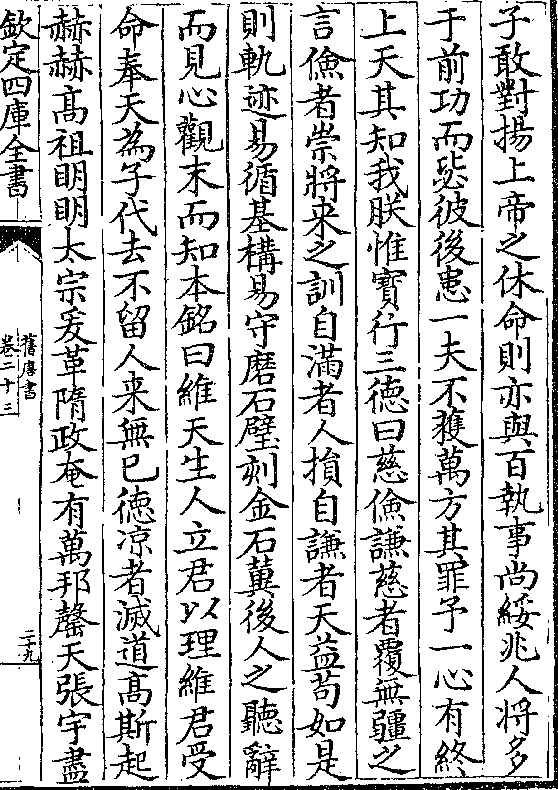 子敢對揚上帝之休命則亦與百執事尚綏兆人將多
于前功而毖彼後患一夫不獲萬方其罪予一心有終
上天其知我朕惟寳行三徳曰慈儉謙慈者覆無疆之
言儉者崇將来之訓自滿者人損自謙者天益苟如是
則軌迹易循基構易守磨石璧刻金石兾後人之聽辭
而見心觀末而知本銘曰維天生人立君以理維君受
命奉天為子代去不留人来無已徳凉者滅道髙斯起
赫赫髙祖明明太宗爰革隋政奄有萬邦罄天張宇盡
欽定四庫全書
舊唐書
卷二十三
二十九